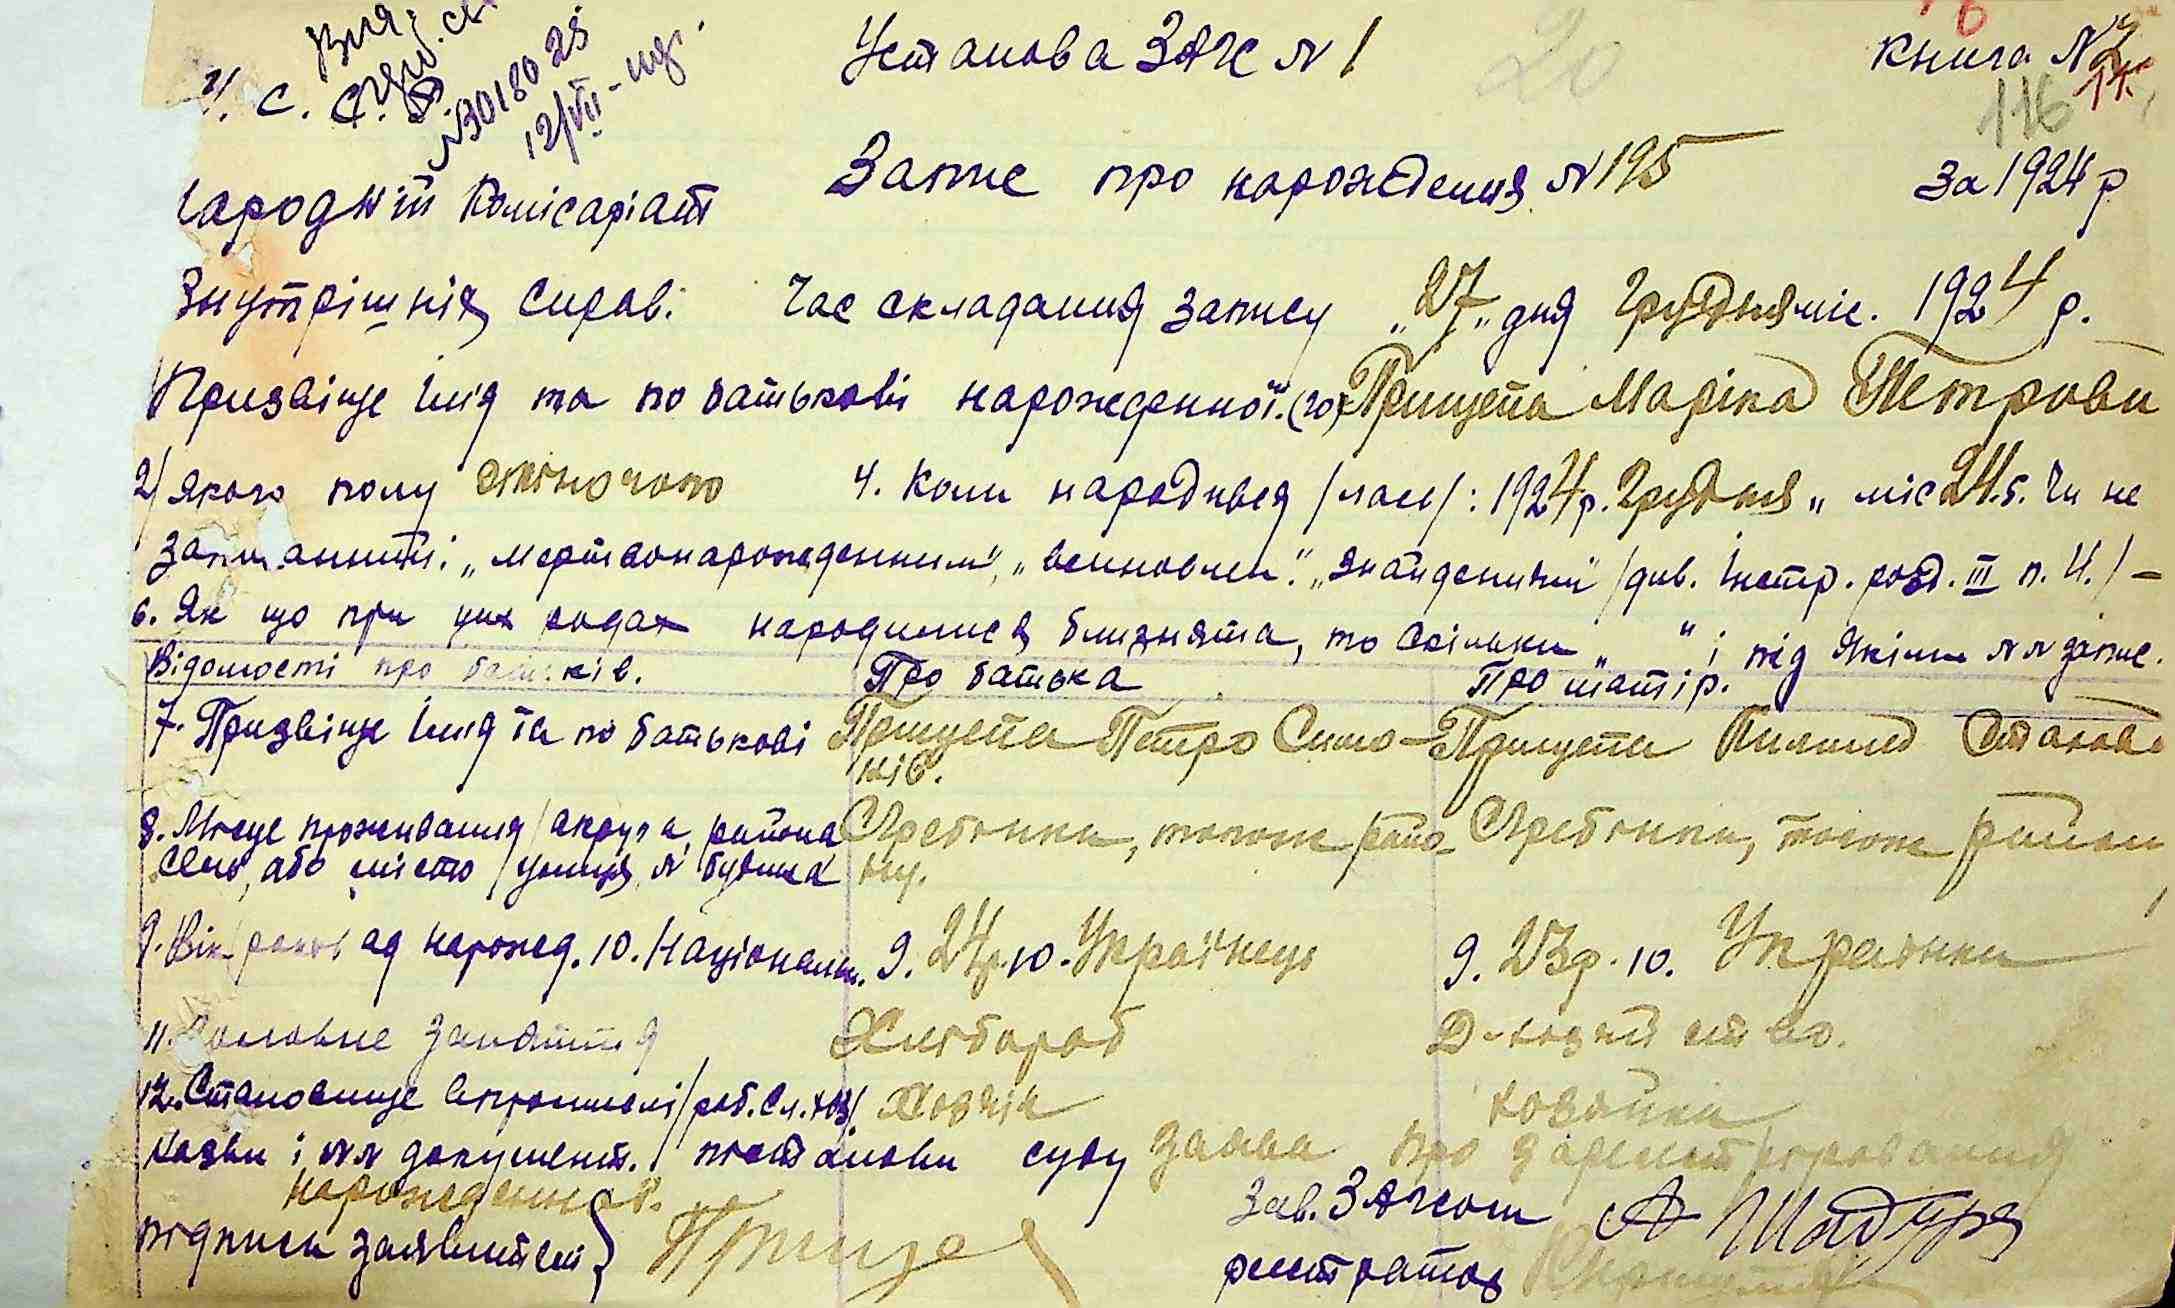 У. С. С. Р.
№ 3018023
12/VII
Установа ЗАГС № 1
Книга № 2
116
20
Народній Комісаріят
Запис про народження № 195
За 1924 р
Внутрішніх Справ.
Час складання запису „27„ дня Грудня міс. 1924 р.
Призвіще імя та по батькові нарожденної. (го) Прищепа Маріка Петрови
2/ Якого полу жіночого 4. Коли народився /лась/: 1924 р. Грудня „ міс 24. 5. Чи не
записанний: „мертвонарожденним", „всиновлен." „знайденний" /див. Інстр. розд. III п. 4./ –
6. Як що при цих родах народилися близнята, то скільки „ " і під якіми №№ запис.
Відомості про батьків.
Про батька
Про матір.
7. Призвіще імя та по батькові
Прищепа Петро Симо-
нів.
Прищепа
8. Місце проживання /округа, района
село, або місто /улиця, № будинка
Сгребенки, того ж райо-
ну.
Сгребенки, того ж район
9. Вік /років од нарожд. 10. Національн.
9. 24 р. 10. Українець
9. 23 р. 10. Українка
11. Головне заняття
Хлібороб
Д-хазяйство.
12. Становище в промислі /роб. сл. хоз/.
Хозяїн
хозяйка
назви і №№ документ. / постанови суду Заява про зареєстрирования
нарождения.
підписи заявителей }
Прищепа
Зав. ЗАГСом А Шадура
реєстратор